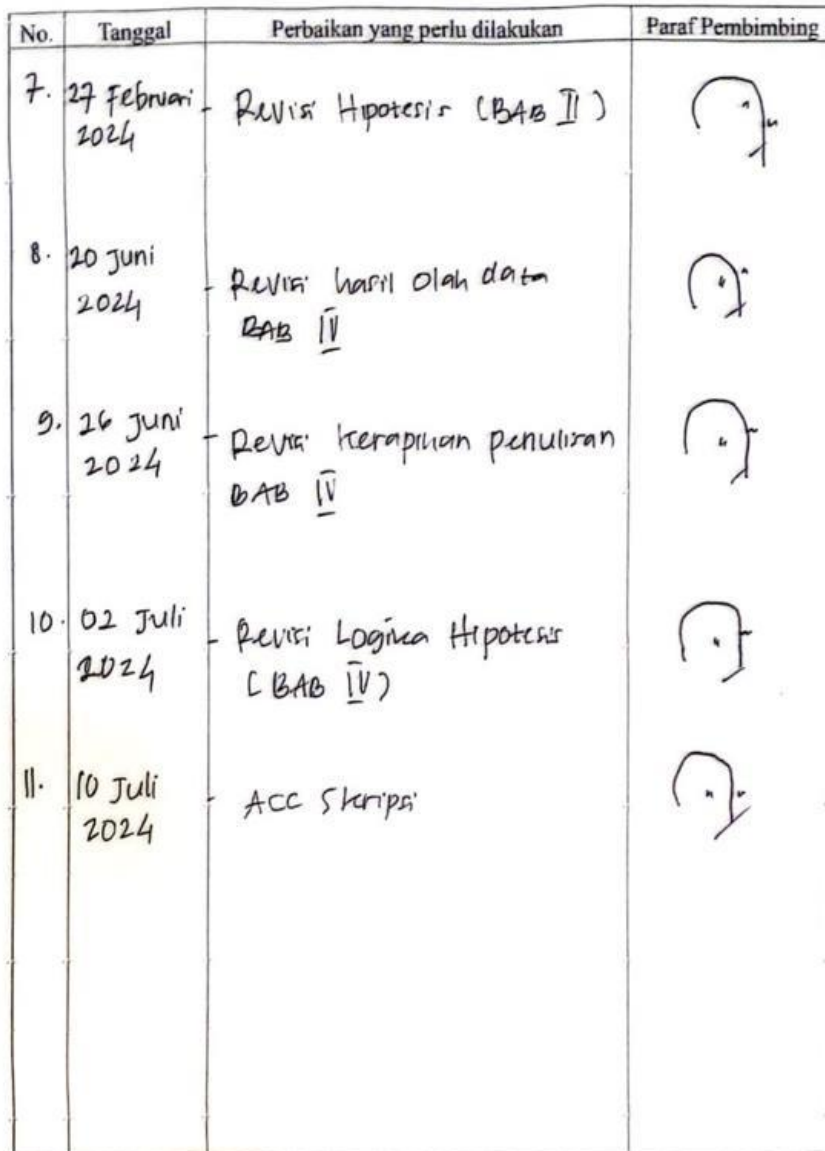 No. Tanggal Perbaikan yang perlu dilakukan Paraf Pembimbing
7. 27 Februari - Revisi Hipotesis (BAB II)
2024
8. 20 Juni
- Revisi hasil olah data
2024
BAB IV
9. 26 Juni
- Revisi kerapihan penulisan
2024
BAB IV
10. 02 Juli
- Revisi Logika Hipotesis
2024
(BAB IV)
11. 10 Juli
- ACC Skripsi
2024